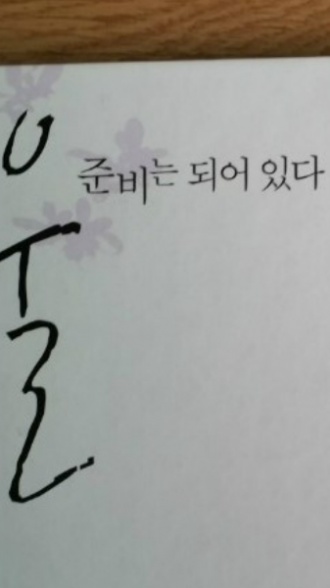 준비는 되어 있다
울